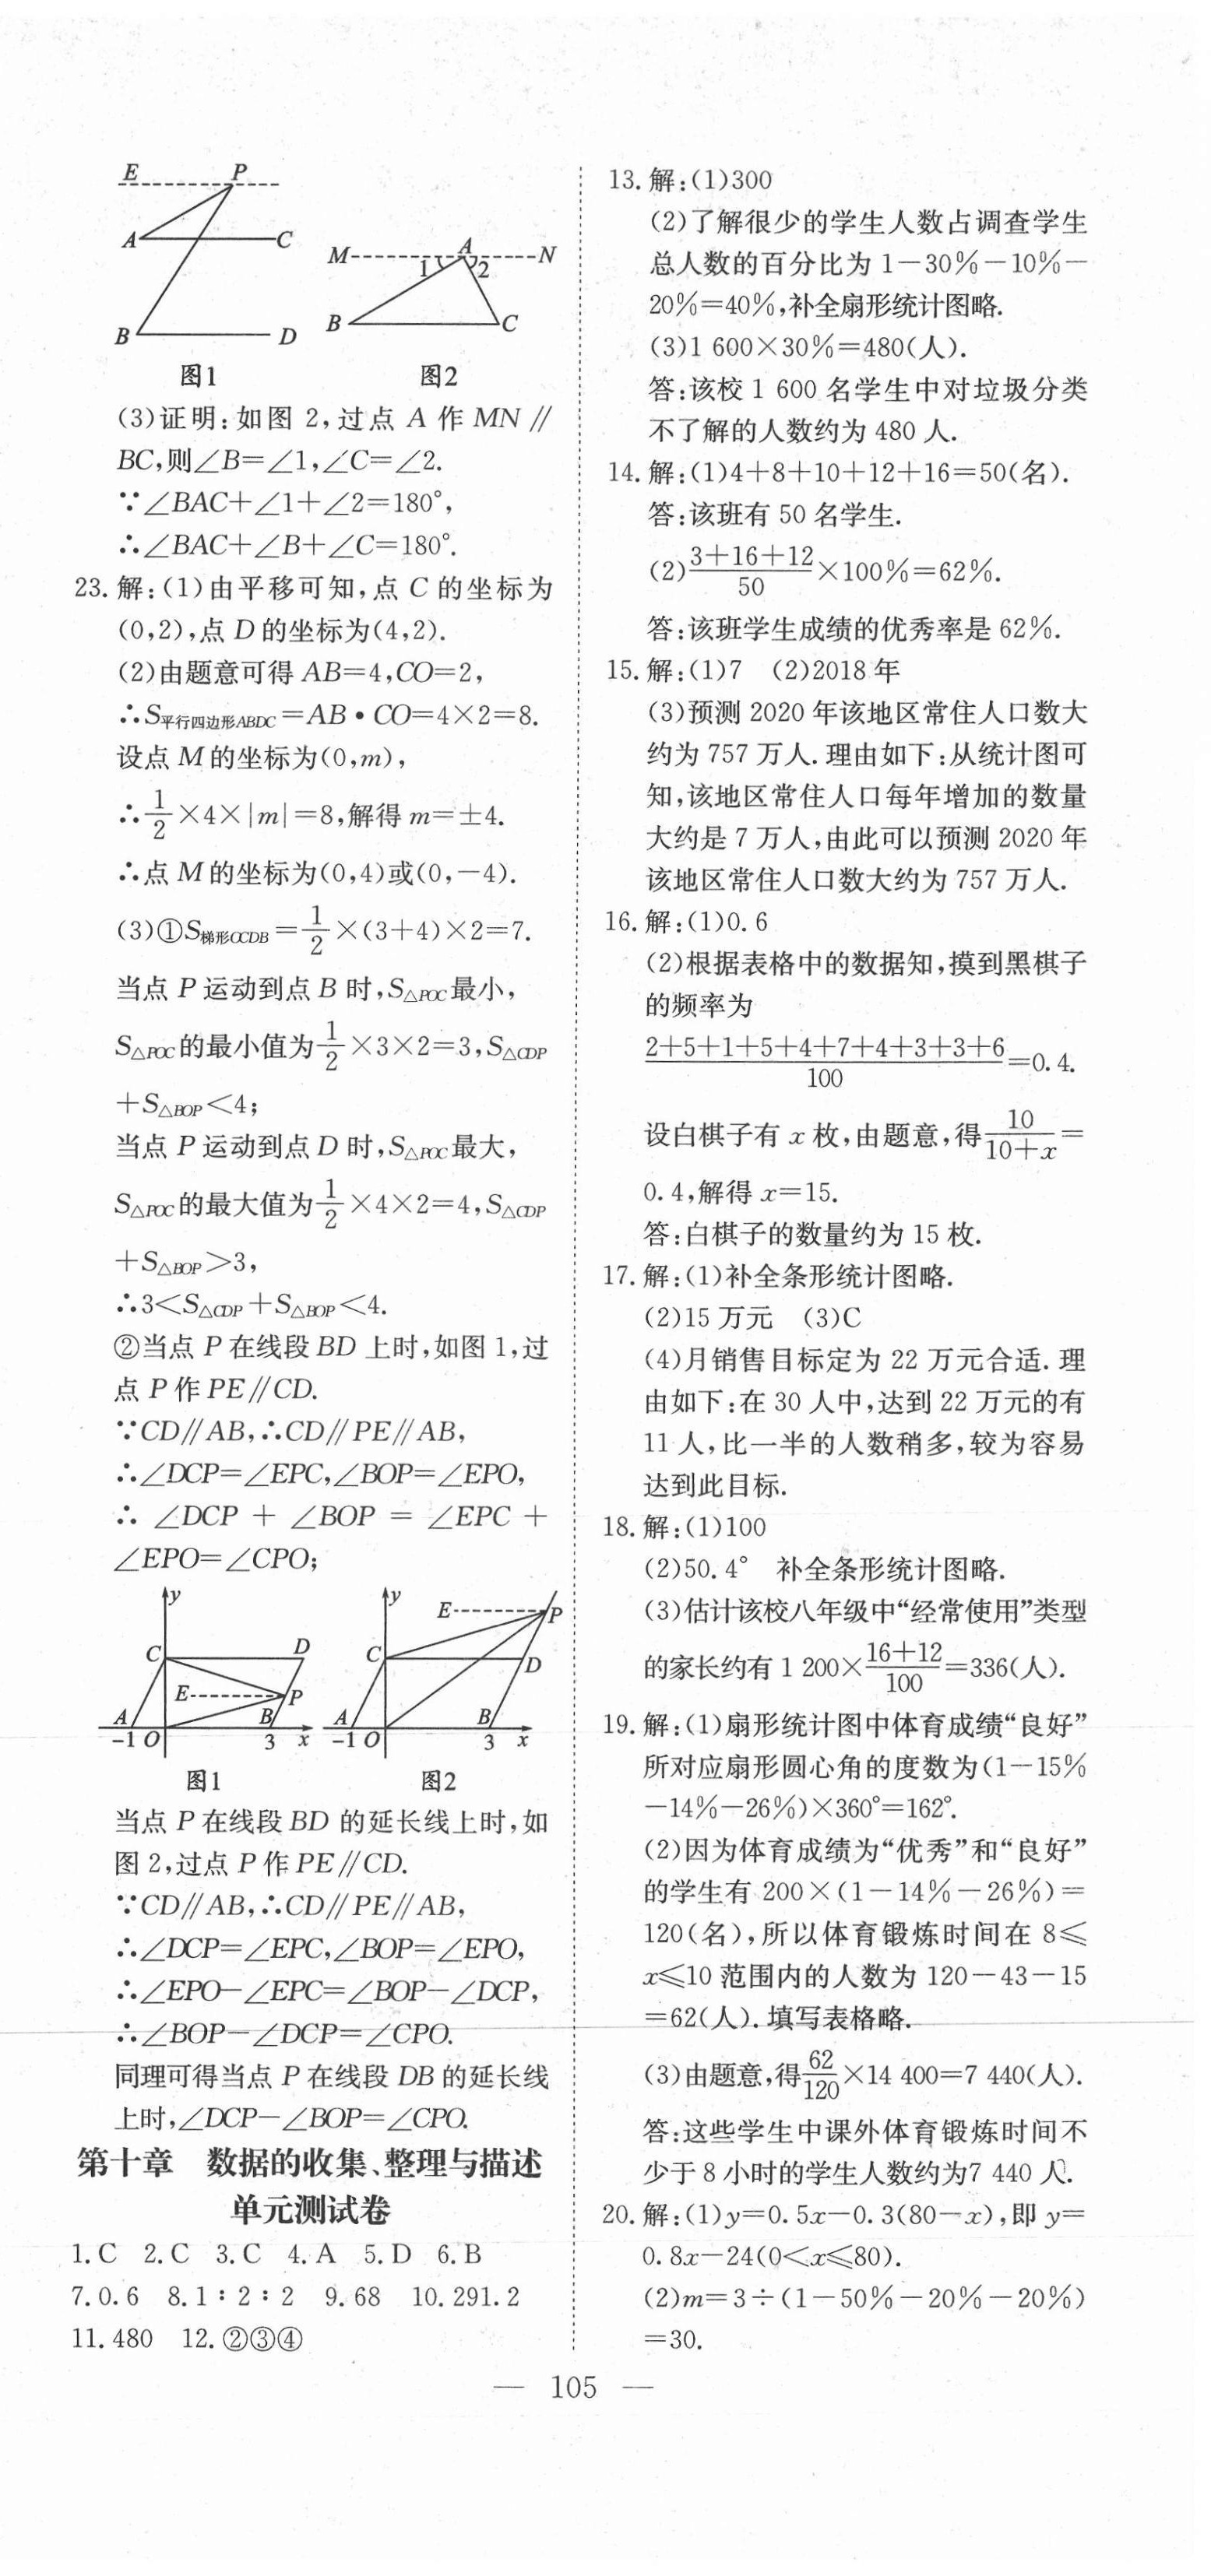 E P
A C
B D
图1
M A N
1 2
B C
图2
(3)证明:如图 2,过点 A 作 MN∥
BC,则∠B=∠1,∠C=∠2.
∵∠BAC+∠1+∠2=180°,
∴∠BAC+∠B+∠C=180°.
23.解:(1)由平移可知,点 C 的坐标为
(0,2),点 D 的坐标为(4,2).
(2)由题意可得 AB=4,CO=2,
∴S平行四边形ABDC=AB•CO=4×2=8.
设点 M 的坐标为(0,m),
∴1/2×4×|m|=8,解得 m=±4.
∴点 M 的坐标为(0,4)或(0,-4).
(3)①S梯形OCDB=1/2×(3+4)×2=7.
当点 P 运动到点 B 时,S△POC最小,
S△POC的最小值为1/2×3×2=3,S△CDP
+S△BOP<4;
当点 P 运动到点 D 时,S△POC最大,
S△POC的最大值为1/2×4×2=4,S△CDP
+S△BOP>3,
∴3<S△CDP+S△BOP<4.
②当点 P 在线段 BD 上时,如图 1,过
点 P 作 PE∥CD.
∵CD∥AB,∴CD∥PE∥AB,
∴∠DCP=∠EPC,∠BOP=∠EPO,
∴ ∠DCP + ∠BOP = ∠EPC +
∠EPO=∠CPO;
y
C D
E P
A B
-1 O 3 x
图1
y
E P
C D
A B
-1 O 3 x
图2
当点 P 在线段 BD 的延长线上时,如
图 2,过点 P 作 PE∥CD.
∵CD∥AB,∴CD∥PE∥AB,
∴∠DCP=∠EPC,∠BOP=∠EPO,
∴∠EPO-∠EPC=∠BOP-∠DCP,
∴∠BOP-∠DCP=∠CPO.
同理可得当点 P 在线段 DB 的延长线
上时,∠DCP-∠BOP=∠CPO.
第十章 数据的收集、整理与描述
单元测试卷
1.C 2.C 3.C 4.A 5.D 6.B
7.0.6 8.1∶2∶2 9.68 10.291.2
11.480 12.②③④
13.解:(1)300
(2)了解很少的学生人数占调查学生
总人数的百分比为 1-30%-10%-
20%=40%,补全扇形统计图略.
(3)1 600×30%=480(人).
答:该校 1 600 名学生中对垃圾分类
不了解的人数约为 480 人.
14.解:(1)4+8+10+12+16=50(名).
答:该班有 50 名学生.
(2)(3+16+12)/50×100%=62%.
答:该班学生成绩的优秀率是 62%.
15.解:(1)7 (2)2018 年
(3)预测 2020 年该地区常住人口数大
约为 757 万人.理由如下:从统计图可
知,该地区常住人口每年增加的数量
大约是 7 万人,由此可以预测 2020 年
该地区常住人口数大约为 757 万人.
16.解:(1)0.6
(2)根据表格中的数据知,摸到黑棋子
的频率为
(2+5+1+5+4+7+4+3+3+6)/100=0.4.
设白棋子有 x 枚,由题意,得10/(10+x)=
0.4,解得 x=15.
答:白棋子的数量约为 15 枚.
17.解:(1)补全条形统计图略.
(2)15 万元 (3)C
(4)月销售目标定为 22 万元合适.理
由如下:在 30 人中,达到 22 万元的有
11 人,比一半的人数稍多,较为容易
达到此目标.
18.解:(1)100
(2)50.4° 补全条形统计图略.
(3)估计该校八年级中“经常使用”类型
的家长约有 1 200×(16+12)/100=336(人).
19.解:(1)扇形统计图中体育成绩“良好”
所对应扇形圆心角的度数为(1-15%
-14%-26%)×360°=162°.
(2)因为体育成绩为“优秀”和“良好”
的学生有 200×(1-14%-26%)=
120(名),所以体育锻炼时间在 8≤
x≤10 范围内的人数为 120-43-15
=62(人).填写表格略.
(3)由题意,得62/120×14 400=7 440(人).
答:这些学生中课外体育锻炼时间不
少于 8 小时的学生人数约为7 440 人.
20.解:(1)y=0.5x-0.3(80-x),即 y=
0.8x-24(0<x≤80).
(2)m=3÷(1-50%-20%-20%)
=30.
— 105 —